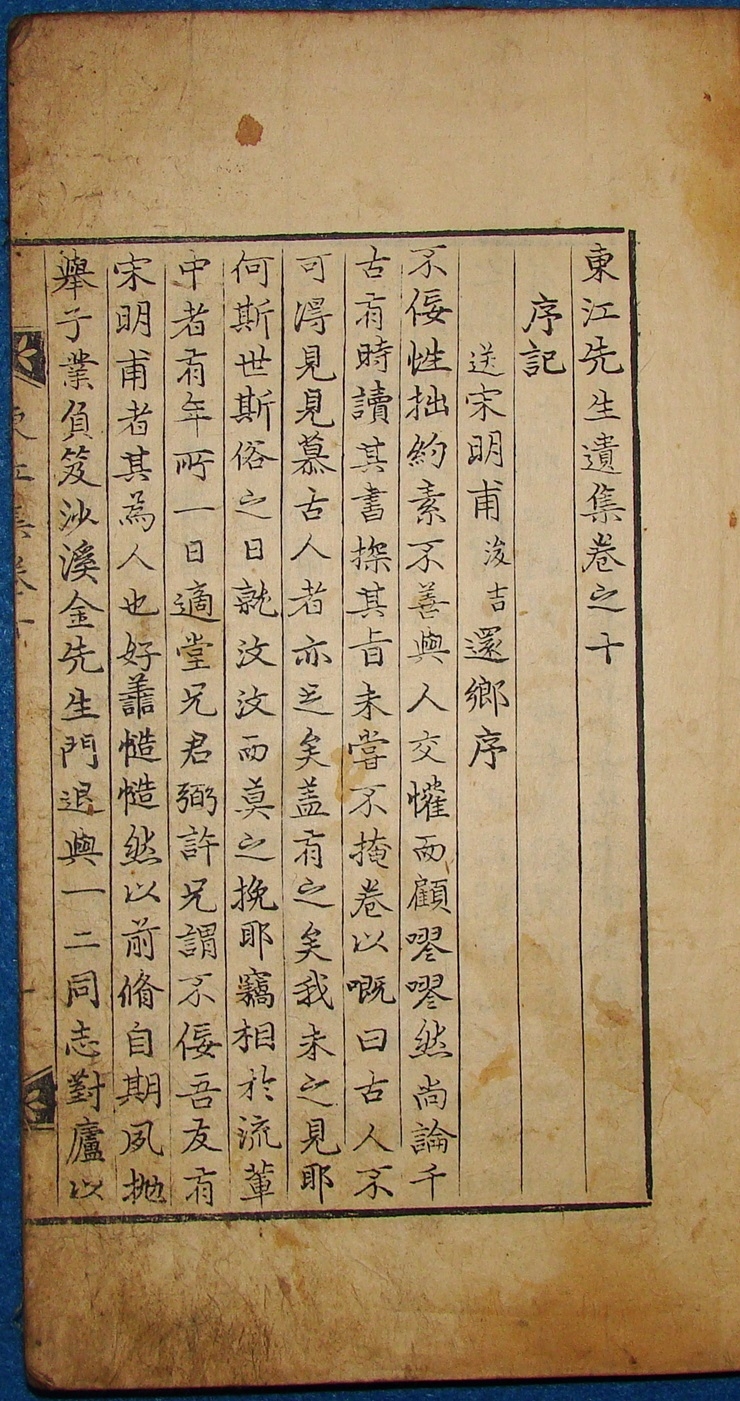 東江先生遺集卷之十
序記
送宋明甫浚吉還鄉序
不佞性拙約素不善與人交懽而顧嘐嘐然尚論千
古有時讀其書探其旨未嘗不掩卷以嘅曰古人不
可得見見慕古人者亦乏矣盖有之矣我未之見耶
何斯世斯俗之日就汶汶而莫之挽耶竊相於流輩
中者有年所一日適堂兄君弼許兄謂不佞吾友有
宋明甫者其為人也好譱慥慥然以前脩自期夙抛
擧子業負笈沙溪金先生門退與一二同志對廬以
東江集卷十